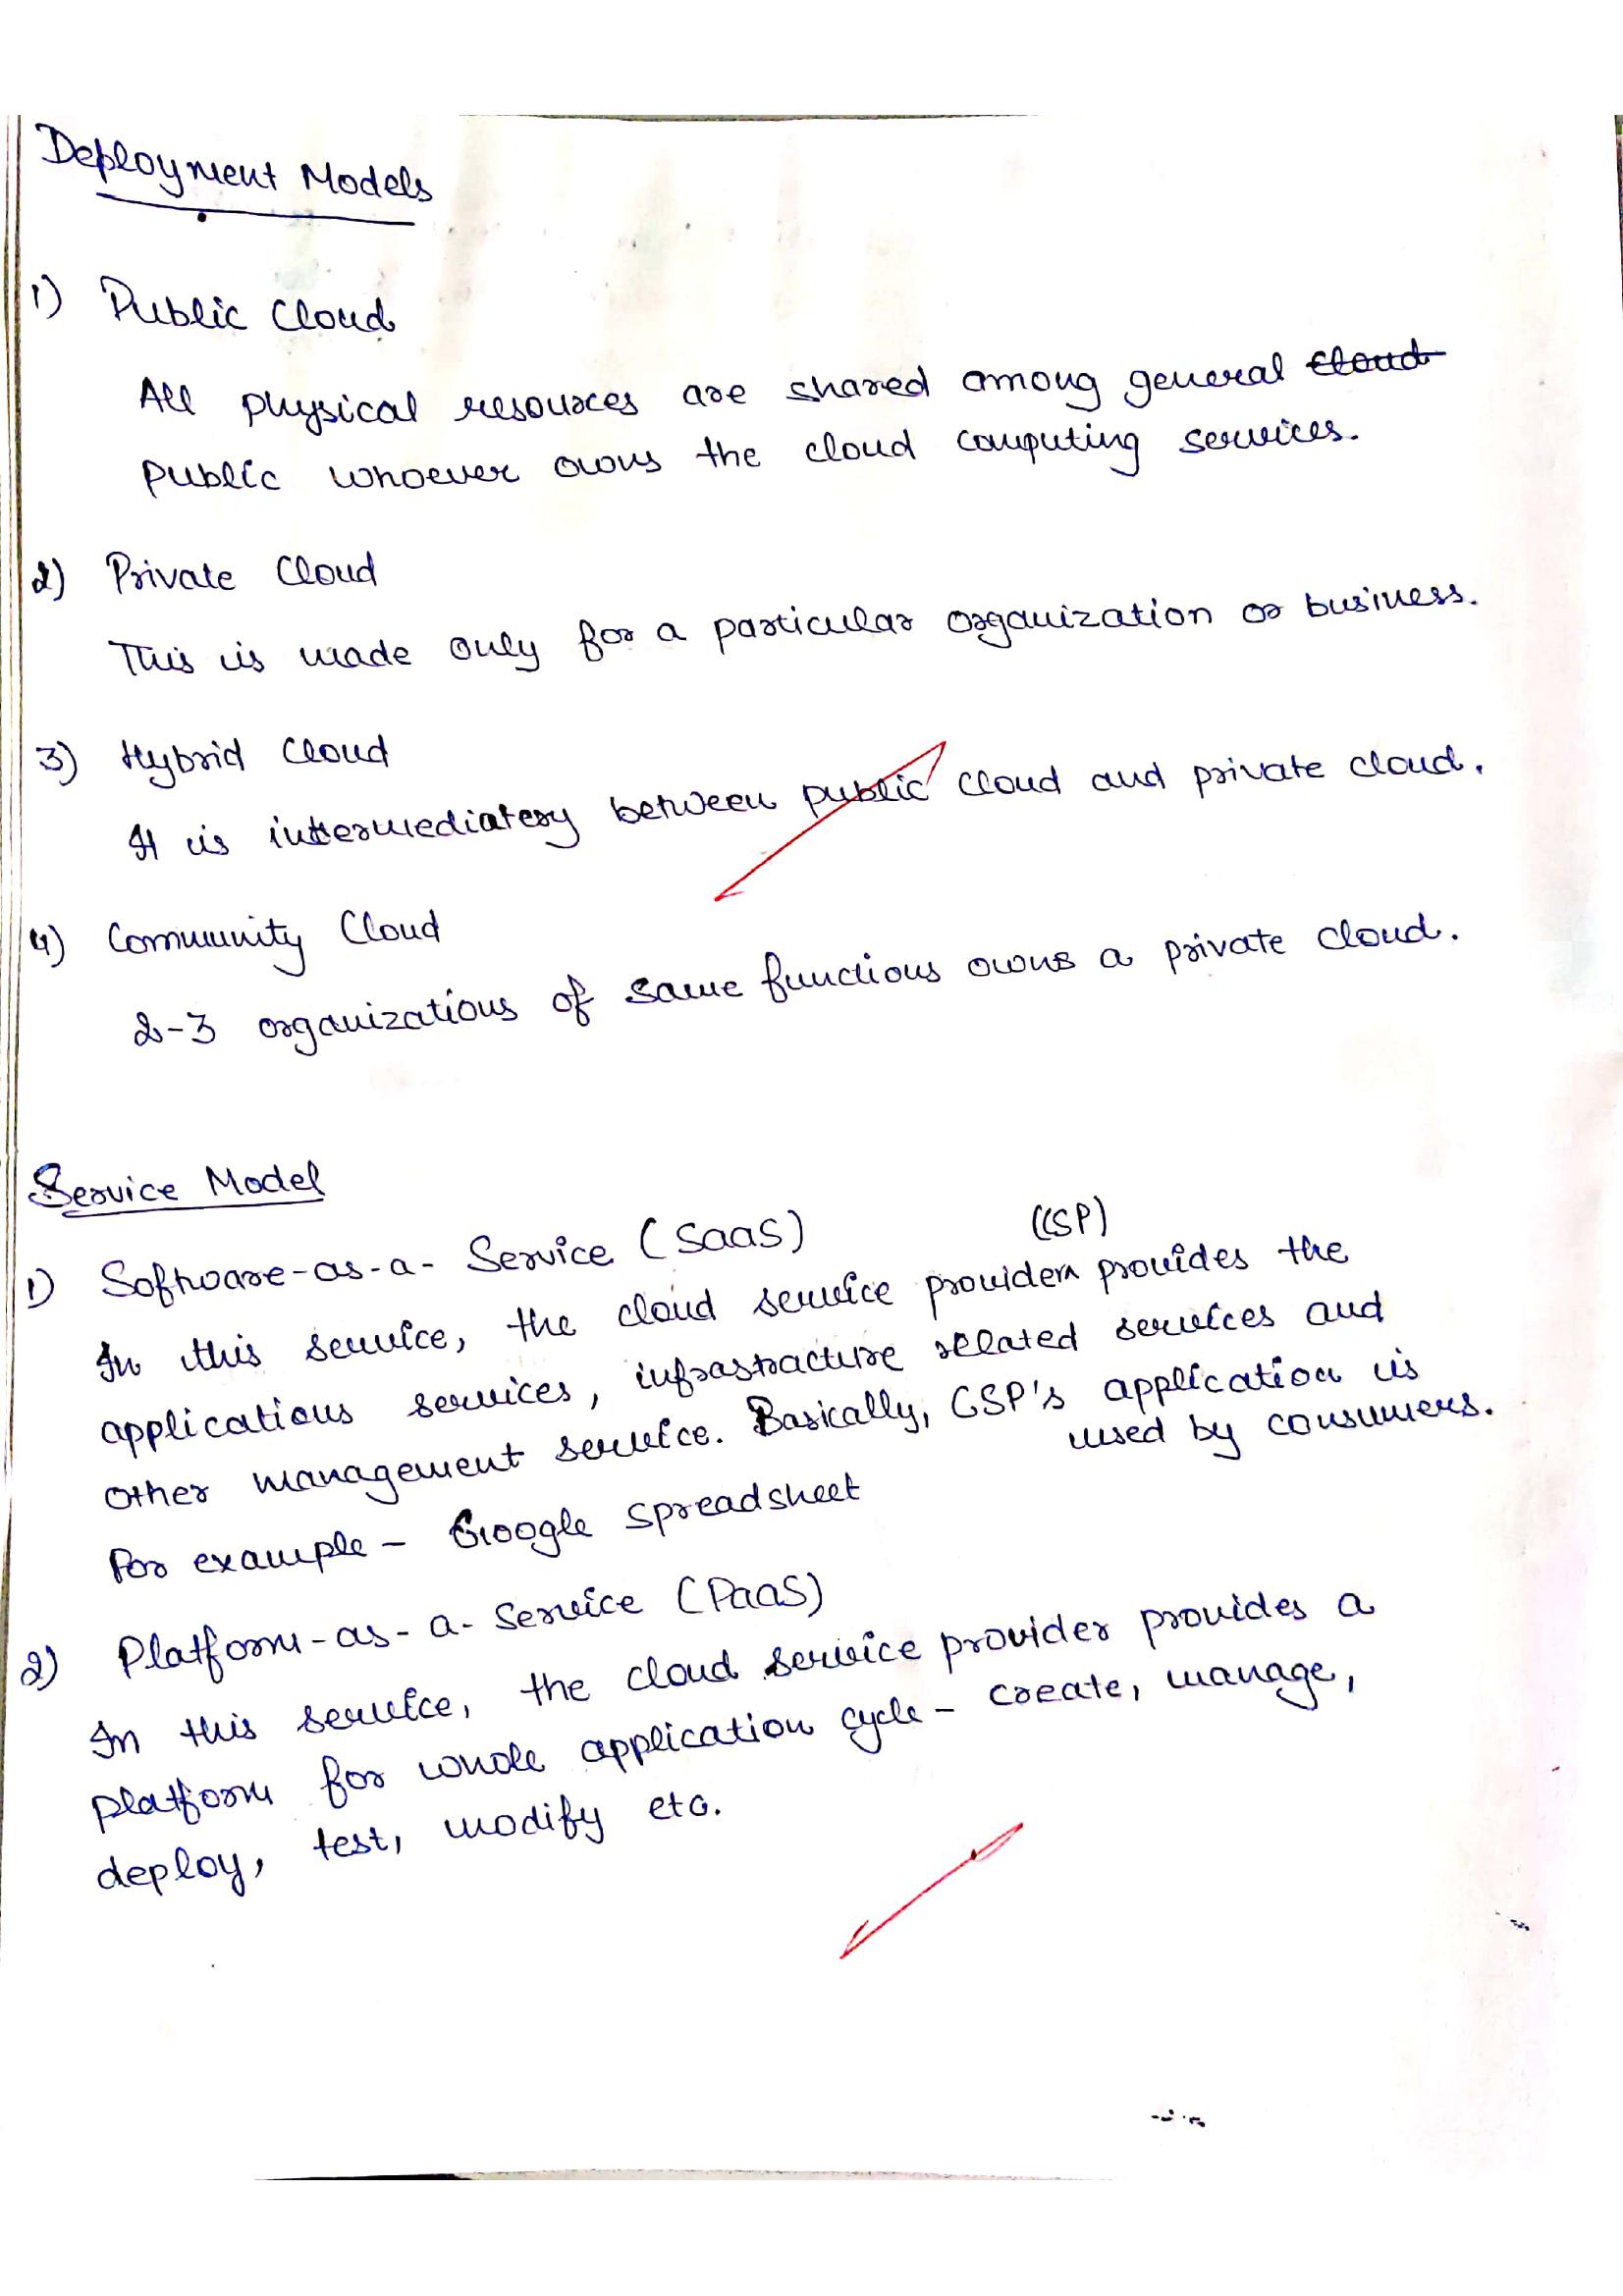 Deployment Models
1) Public Cloud
All physical resources are shared among general cloud
public whoever owns the cloud computing services.
2) Private Cloud
This is made only for a particular organization or business.
3) Hybrid Cloud
It is intermediatery between public cloud and private cloud.
4) Community Cloud
2-3 organizations of same functions owns a private cloud.
Service Model
1) Software-as-a-Service (SaaS)
(CSP)
In this service, the cloud service provider provides the
applications services, infrastracture related services and
other management service. Basically, CSP's application is
used by consumers.
For example - Google Spreadsheet
2) Platform-as-a-Service (PaaS)
In this service, the cloud service provider provides a
platform for whole application cycle - create, manage,
deploy, test, modify etc.